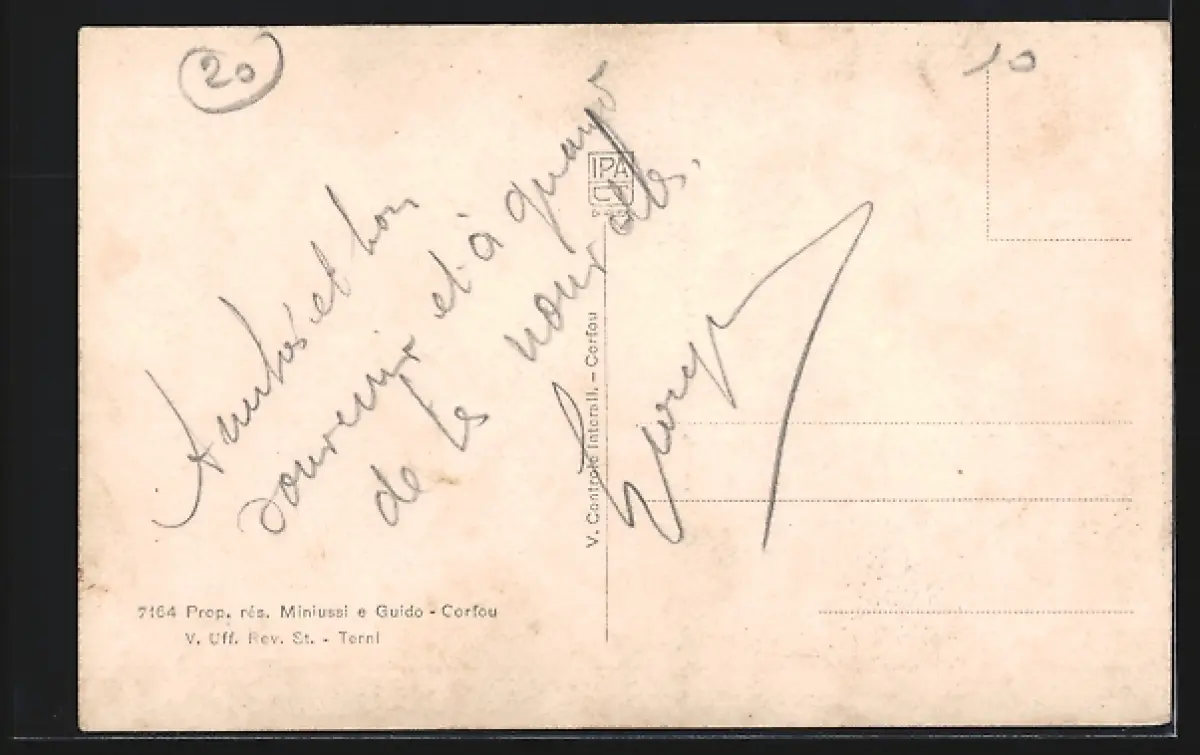 20
10
Amitiés et bon
souvenir et à quand
de tes nouvelles.
IPA
CT
V. Controle Interall. - Corfou
7164 Prop. rés. Miniussi e Guido - Corfou
V. Uff. Rev. St. - Terni